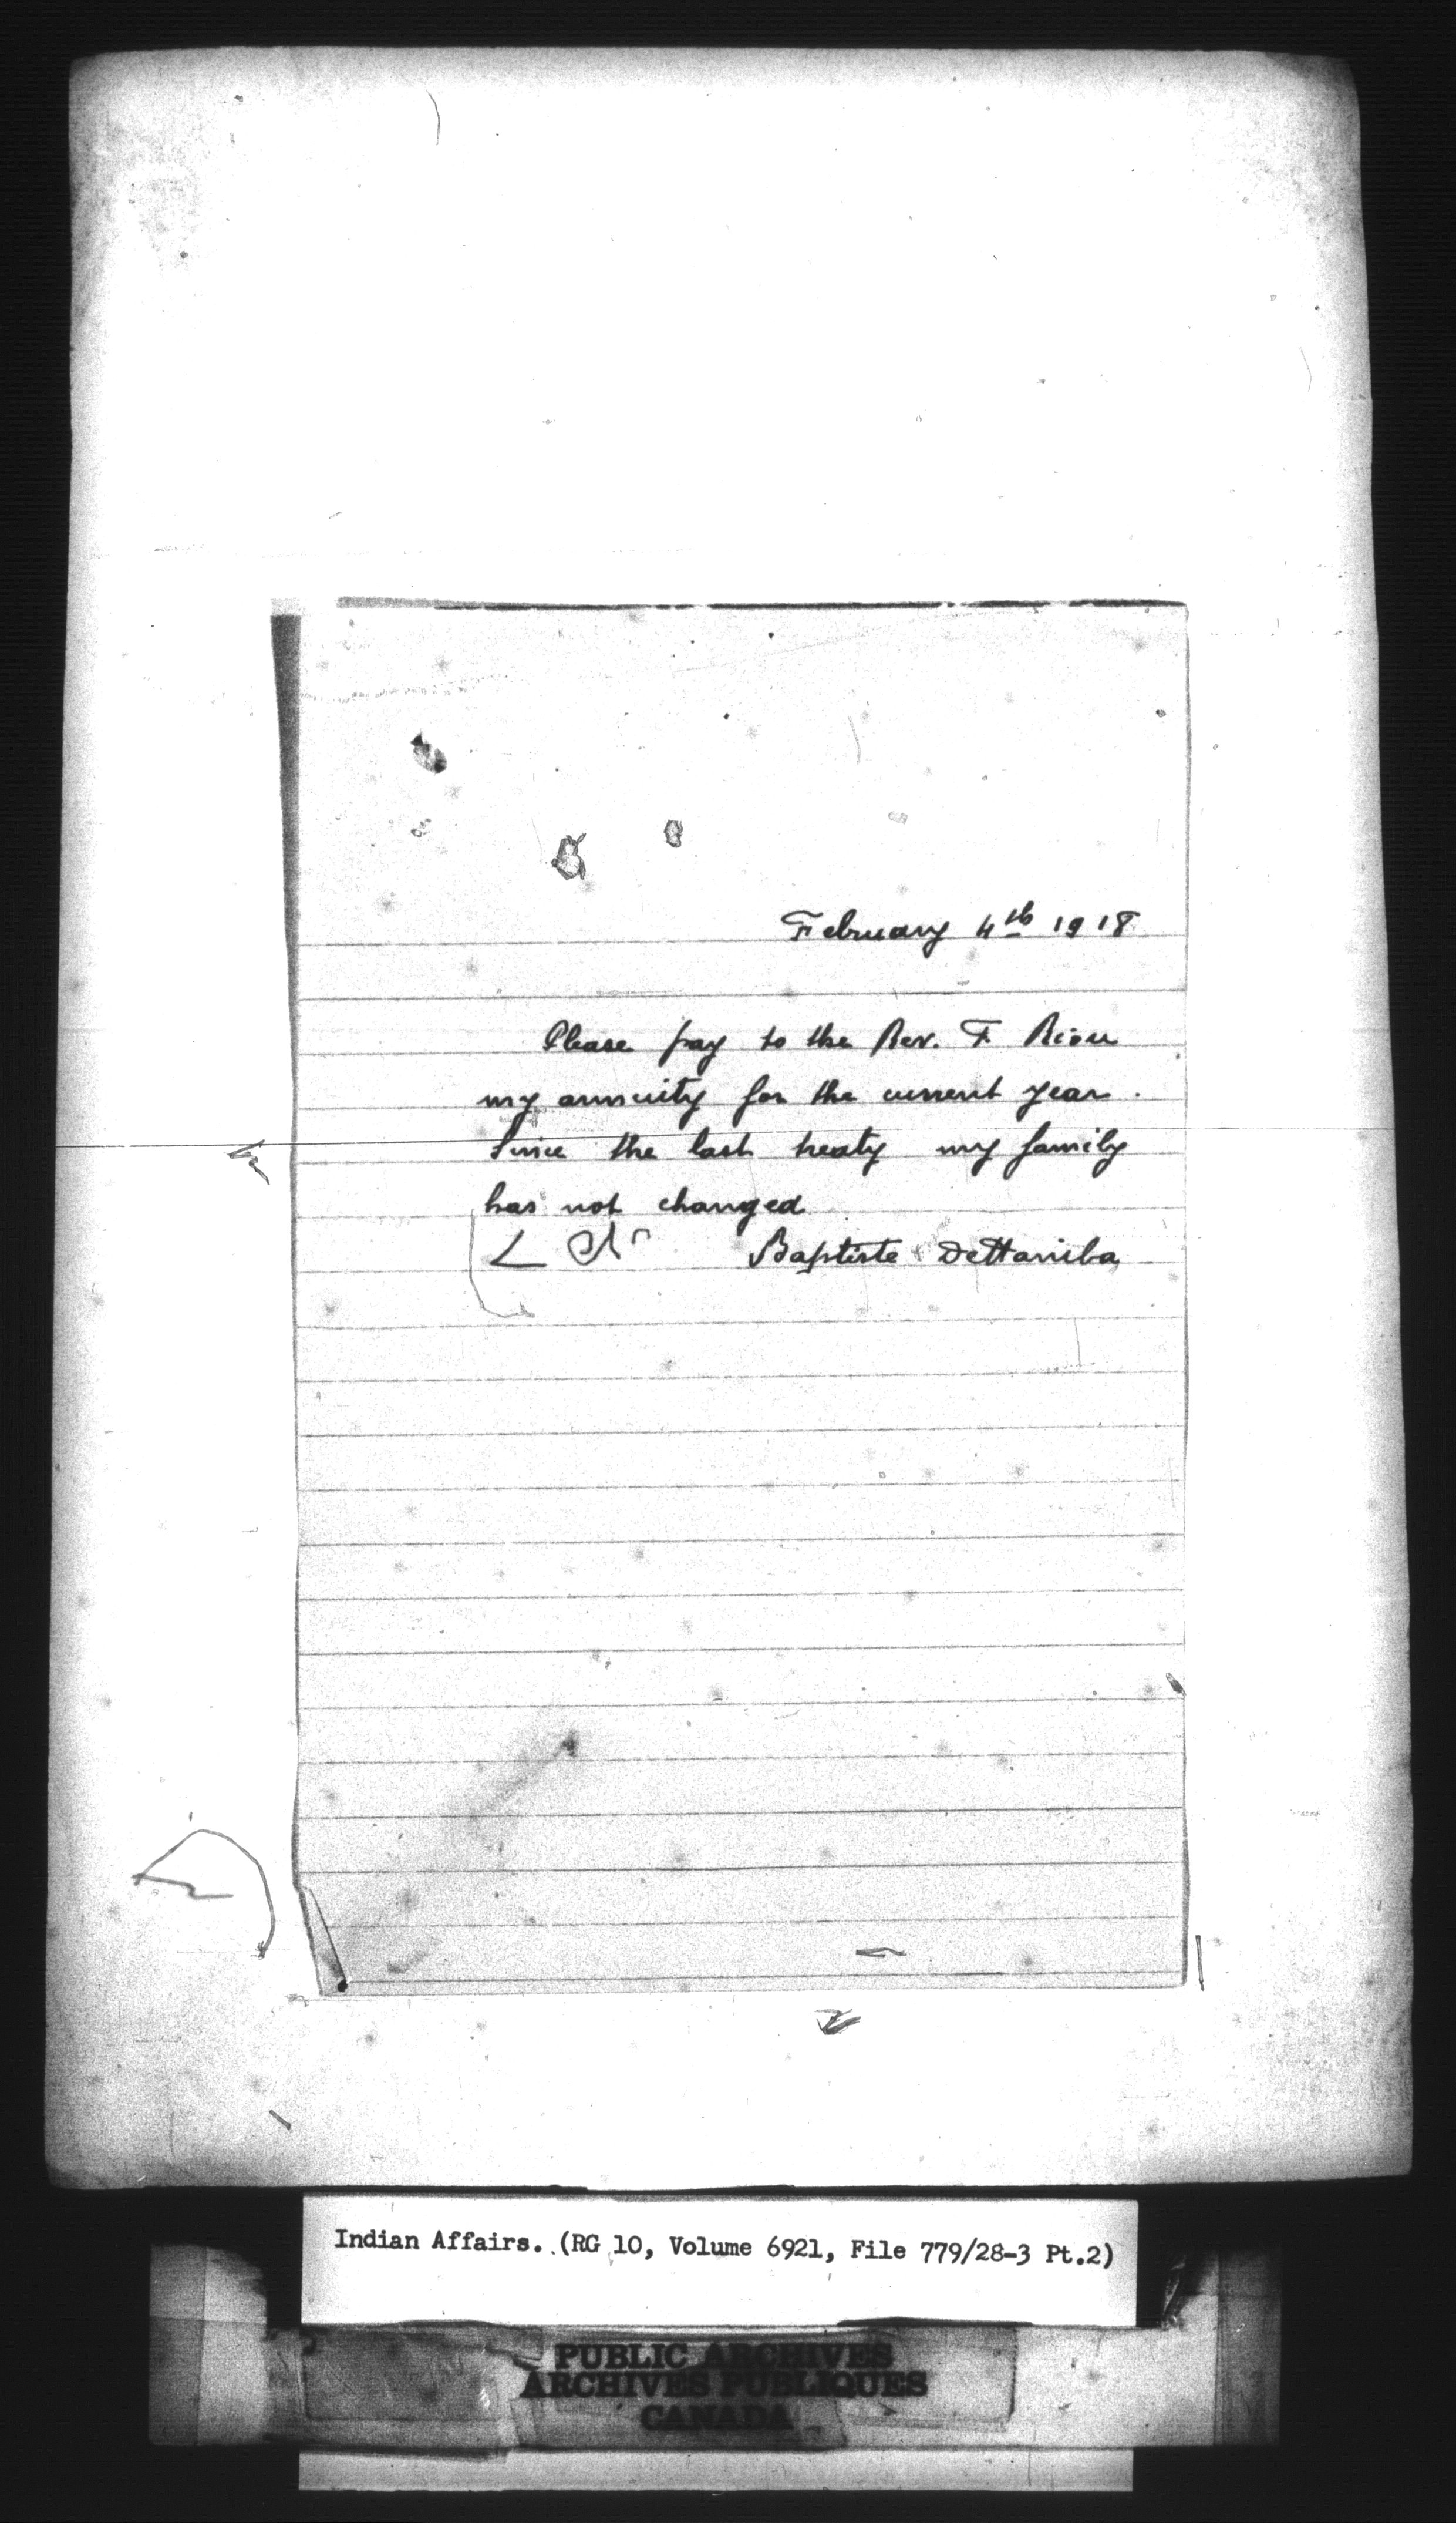 February 4th 1918
Please pay to the Rev. F Riou
my annuity for the current year.
Since the last treaty my family
has not changed
Baptiste Dettaniba
Indian Affairs. (RG 10, Volume 6921, File 779/28-3 Pt.2)
PUBLIC ARCHIVES
ARCHIVES PUBLIQUES
CANADA